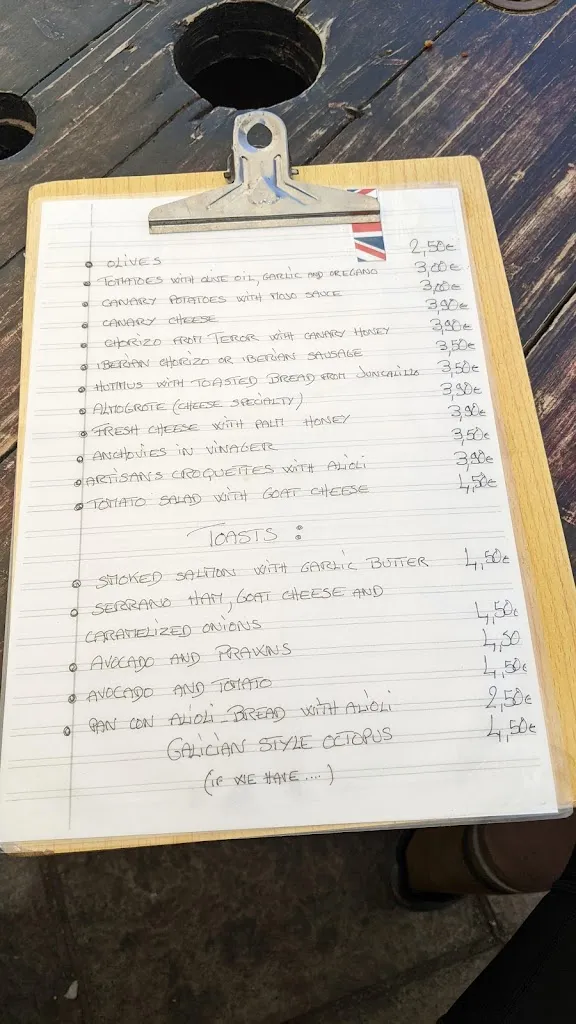 OLIVES 2,50€
TOMATOES WITH OLIVE OIL, GARLIC AND OREGANO 3,00€
CANARY POTATOES WITH MOJO SAUCE 3,00€
CANARY CHEESE 3,90€
CHORIZO FROM TEROR WITH CANARY HONEY 3,90€
IBERIAN CHORIZO OR IBERIAN SAUSAGE 3,50€
HUMMUS WITH TOASTED BREAD FROM JUNCALILLO 3,50€
ALMOGROTE (CHEESE SPECIALTY) 3,90€
FRESH CHEESE WITH PALM HONEY 3,90€
ANCHOVIES IN VINAGER 3,50€
ARTISANS CROQUETTES WITH ALIOLI 3,90€
TOMATO SALAD WITH GOAT CHEESE 4,50€
TOASTS :
SMOKED SALMON WITH GARLIC BUTTER 4,50€
SERRANO HAM, GOAT CHEESE AND
CARAMELIZED ONIONS 4,50€
AVOCADO AND PRAWNS 4,50
AVOCADO AND TOMATO 4,50€
PAN CON ALIOLI - BREAD WITH ALIOLI 2,50€
GALICIAN STYLE OCTOPUS 4,50€
(IF WE HAVE ....)